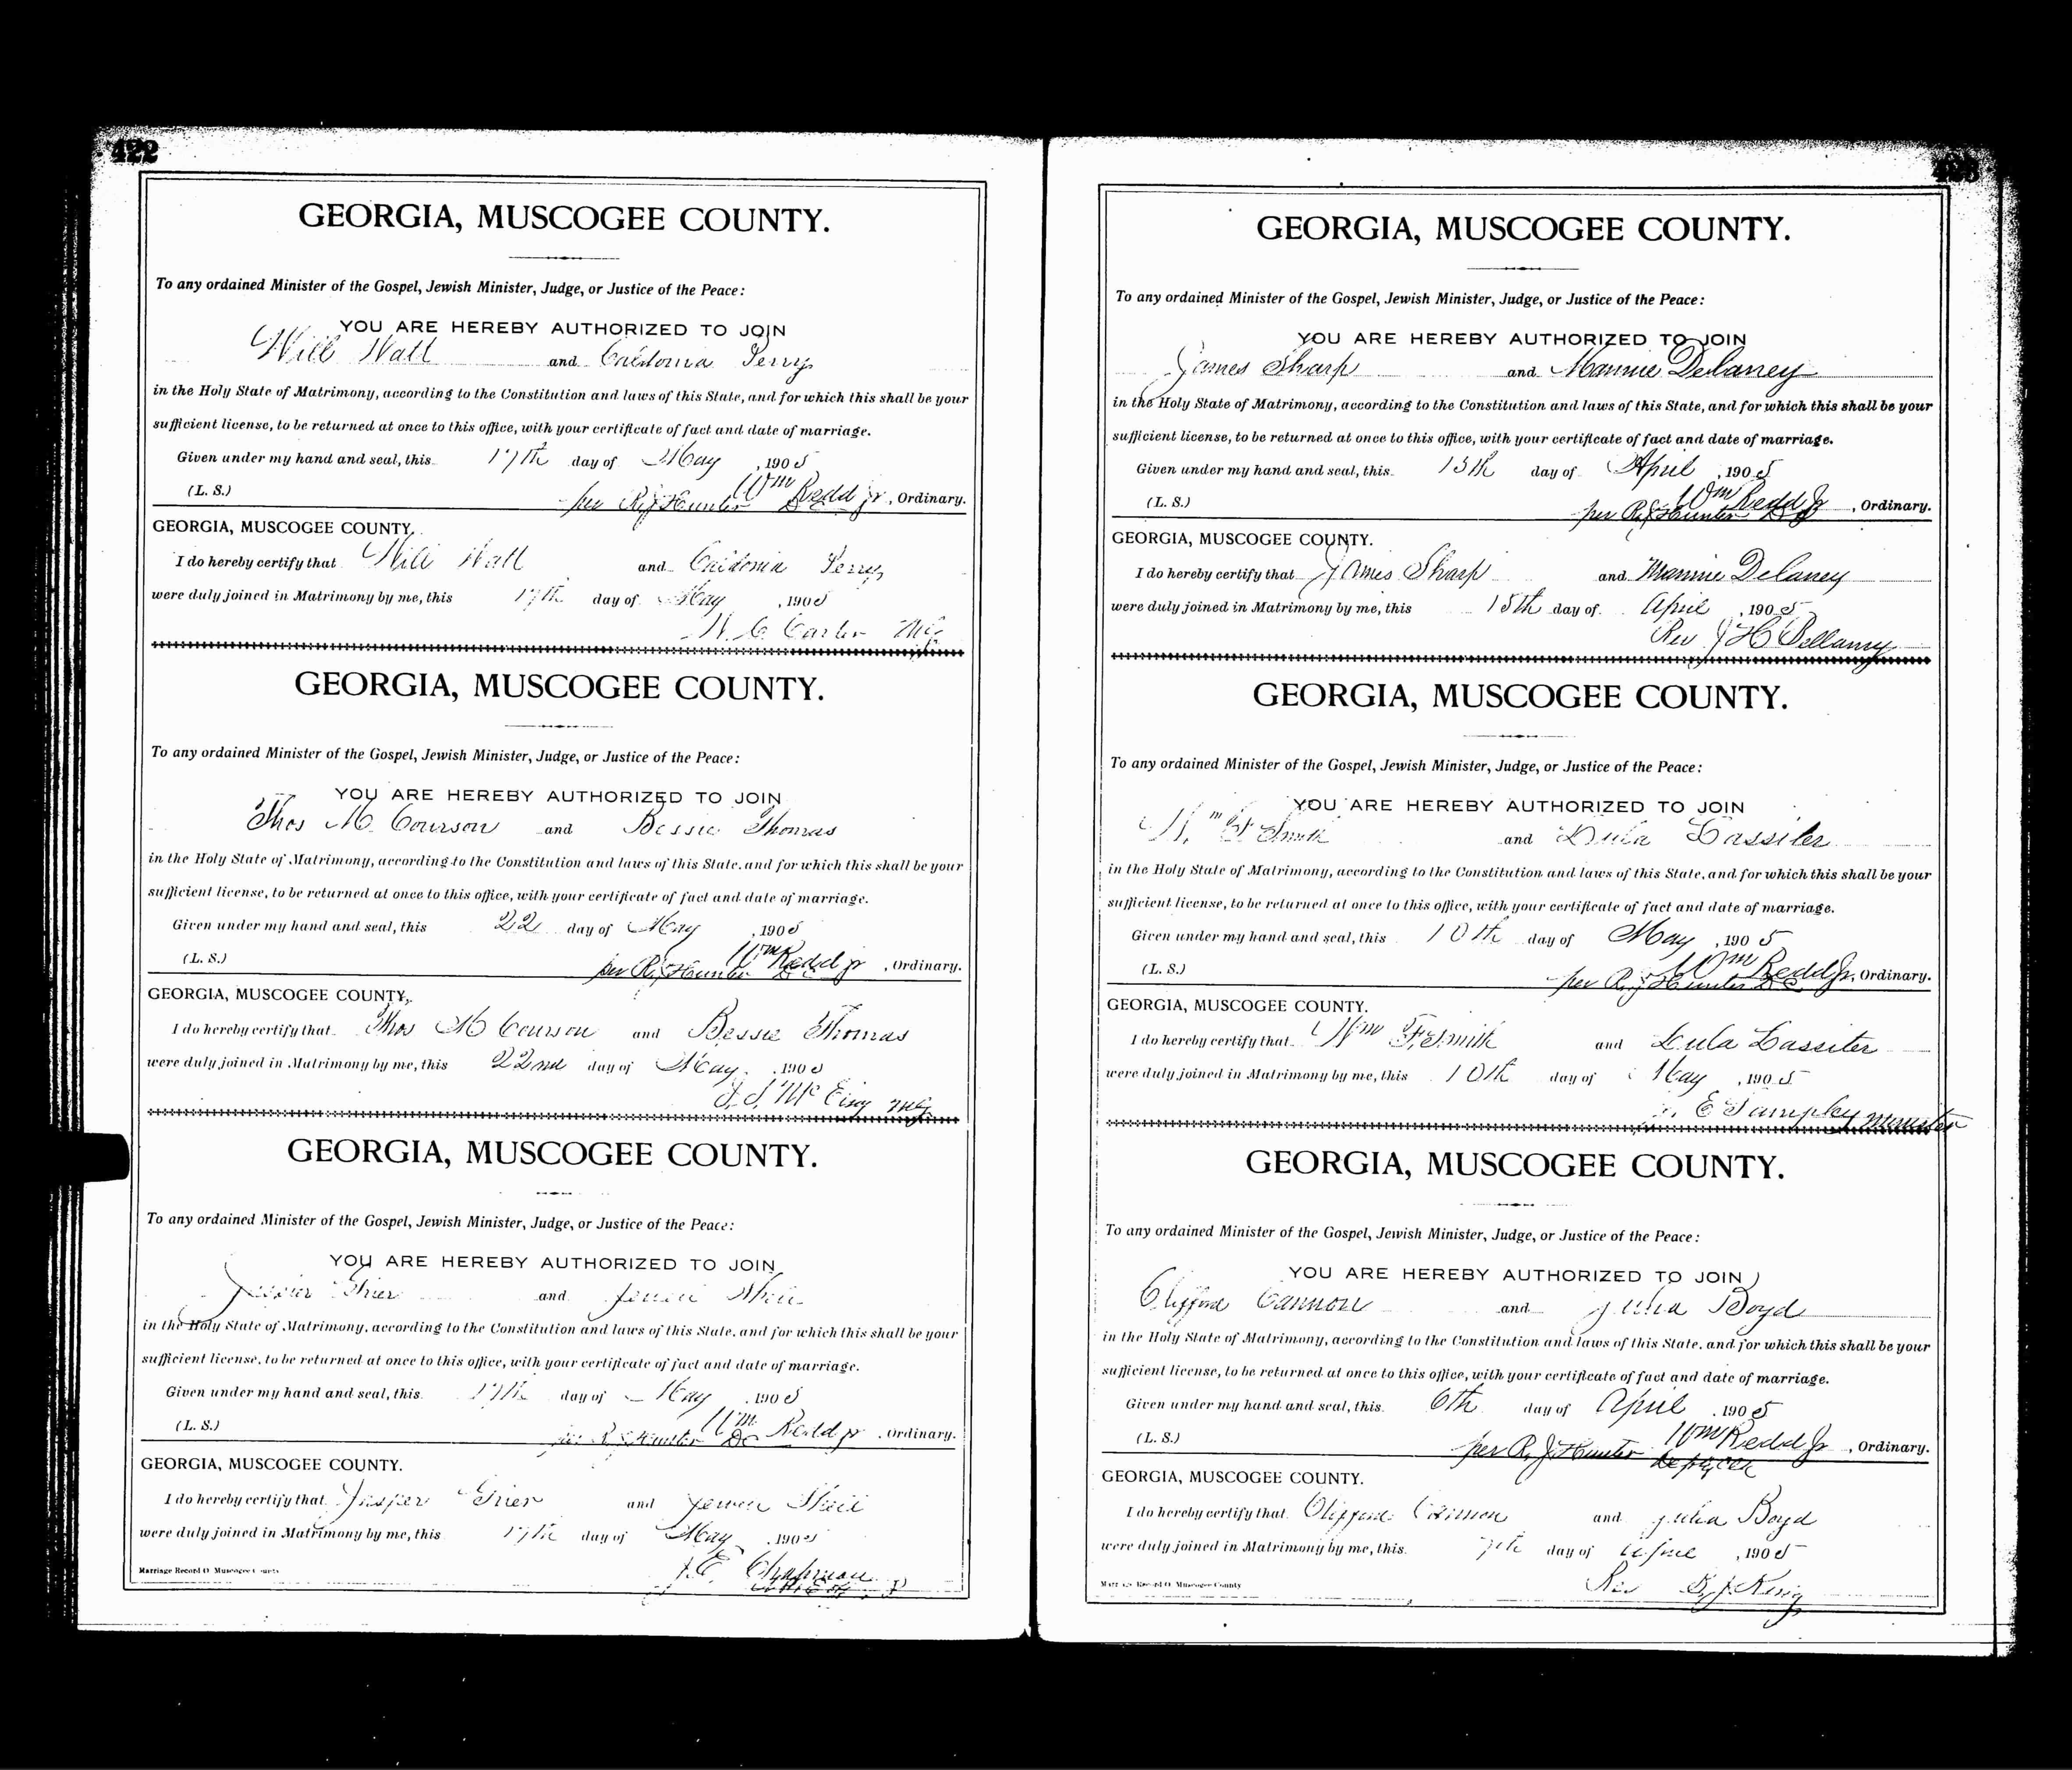 422
GEORGIA, MUSCOGEE COUNTY.
To any ordained Minister of the Gospel, Jewish Minister, Judge, or Justice of the Peace:
YOU ARE HEREBY AUTHORIZED TO JOIN
Will Wall and Caldonia Perry
in the Holy State of Matrimony, according to the Constitution and laws of this State, and for which this shall be your
sufficient license, to be returned at once to this office, with your certificate of fact and date of marriage.
Given under my hand and seal, this 17th day of May, 1905
(L. S.) per R. J. Hunter Wm Redd Jr, Ordinary.
GEORGIA, MUSCOGEE COUNTY.
I do hereby certify that Will Wall and Caldonia Perry
were duly joined in Matrimony by me, this 17th day of May, 1905
Carter
GEORGIA, MUSCOGEE COUNTY.
To any ordained Minister of the Gospel, Jewish Minister, Judge, or Justice of the Peace:
YOU ARE HEREBY AUTHORIZED TO JOIN
Thos M. Courson and Bessie Thomas
in the Holy State of Matrimony, according to the Constitution and laws of this State, and for which this shall be your
sufficient license, to be returned at once to this office, with your certificate of fact and date of marriage.
Given under my hand and seal, this 22 day of May, 1905
(L. S.) per R. J. Hunter Wm Redd Jr, Ordinary.
GEORGIA, MUSCOGEE COUNTY.
I do hereby certify that Thos M Courson and Bessie Thomas
were duly joined in Matrimony by me, this 22nd day of May, 1905
GEORGIA, MUSCOGEE COUNTY.
To any ordained Minister of the Gospel, Jewish Minister, Judge, or Justice of the Peace:
YOU ARE HEREBY AUTHORIZED TO JOIN
Grier and
in the Holy State of Matrimony, according to the Constitution and laws of this State, and for which this shall be your
sufficient license, to be returned at once to this office, with your certificate of fact and date of marriage.
Given under my hand and seal, this 17th day of May, 1905
(L. S.) per R J Hunter DC Wm Redd Jr, Ordinary.
GEORGIA, MUSCOGEE COUNTY.
I do hereby certify that Jasper Grier and
were duly joined in Matrimony by me, this 17th day of May, 1905
Marriage Record O Muscogee County
J. E. Chapman
GEORGIA, MUSCOGEE COUNTY.
To any ordained Minister of the Gospel, Jewish Minister, Judge, or Justice of the Peace:
YOU ARE HEREBY AUTHORIZED TO JOIN
James Sharp and Mamie Delaney
in the Holy State of Matrimony, according to the Constitution and laws of this State, and for which this shall be your
sufficient license, to be returned at once to this office, with your certificate of fact and date of marriage.
Given under my hand and seal, this 15th day of April, 1905
(L. S.) per R. J. Hunter Wm Redd Jr, Ordinary.
GEORGIA, MUSCOGEE COUNTY.
I do hereby certify that James Sharp and Mamie Delaney
were duly joined in Matrimony by me, this 15th day of April, 1905
Rev J H Bellamy
GEORGIA, MUSCOGEE COUNTY.
To any ordained Minister of the Gospel, Jewish Minister, Judge, or Justice of the Peace:
YOU ARE HEREBY AUTHORIZED TO JOIN
Wm F Smith and Lula Lassiter
in the Holy State of Matrimony, according to the Constitution and laws of this State, and for which this shall be your
sufficient license, to be returned at once to this office, with your certificate of fact and date of marriage.
Given under my hand and seal, this 10th day of May, 1905
(L. S.) per R. J. Hunter Wm Redd Jr, Ordinary.
GEORGIA, MUSCOGEE COUNTY.
I do hereby certify that Wm F. Smith and Lula Lassiter
were duly joined in Matrimony by me, this 10th day of May, 1905
Minister
GEORGIA, MUSCOGEE COUNTY.
To any ordained Minister of the Gospel, Jewish Minister, Judge, or Justice of the Peace:
YOU ARE HEREBY AUTHORIZED TO JOIN
Clifford Cannon and Julia Boyd
in the Holy State of Matrimony, according to the Constitution and laws of this State, and for which this shall be your
sufficient license, to be returned at once to this office, with your certificate of fact and date of marriage.
Given under my hand and seal, this 6th day of April, 1905
(L. S.) per R. J. Hunter Wm Redd Jr, Ordinary.
GEORGIA, MUSCOGEE COUNTY.
I do hereby certify that Clifford Cannon and Julia Boyd
were duly joined in Matrimony by me, this 7th day of April, 1905
Marriage Record O Muscogee County
Rev